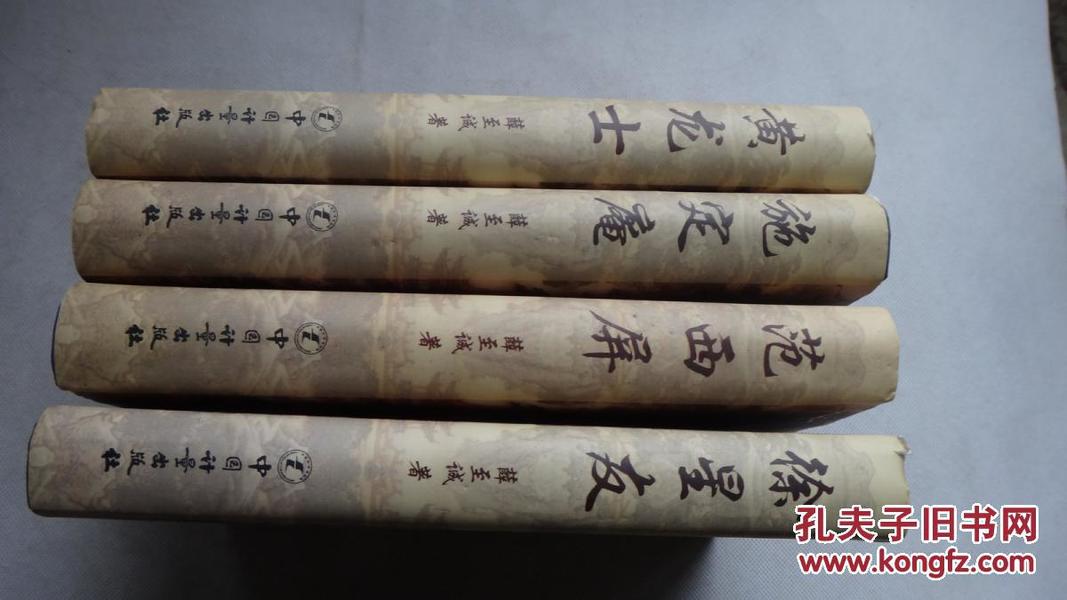 黄龙士
薛至诚 著
中国计量出版社
施定庵
薛至诚 著
中国计量出版社
范西屏
薛至诚 著
中国计量出版社
徐星友
薛至诚 著
中国计量出版社
孔夫子旧书网
www.kongfz.com